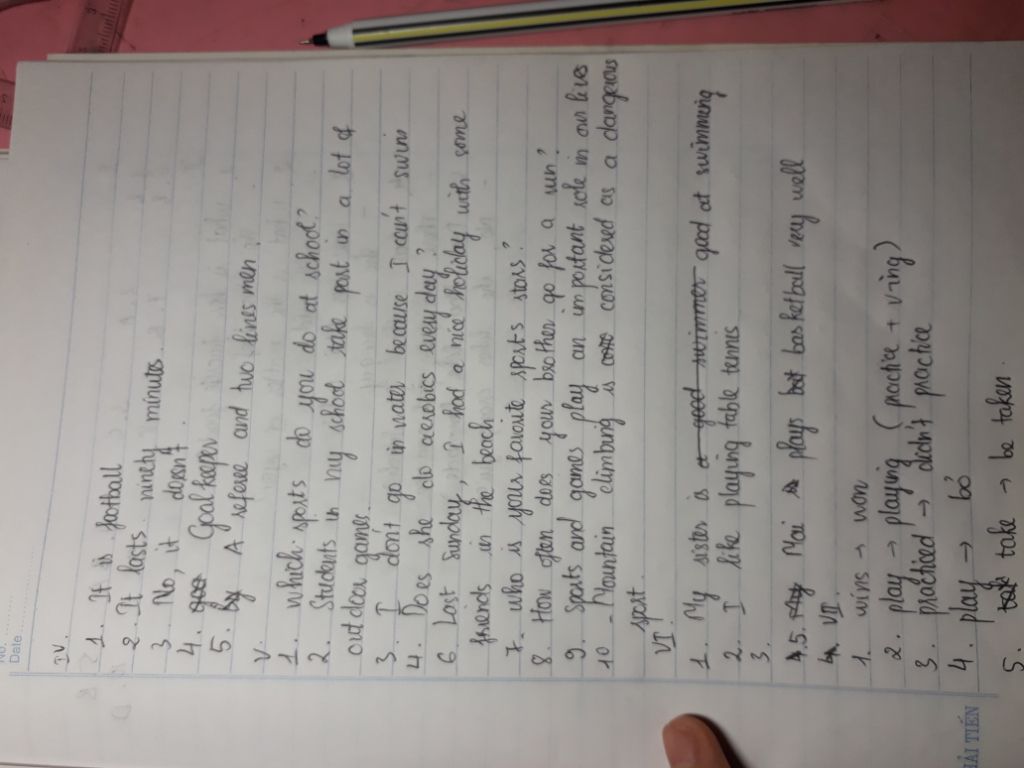 No.
Date
IV.
1. It is football
2. It lasts ninety minutes
3 No, it doesn't.
4. Goal keeper
5. A referee and two lines men
V.
1. which sports do you do at school?
2. Students in my school take part in a lot of
out door games.
3. I don't go in water because I can't swim
4. Does she do aerobics every day?
6. Last Sunday, I had a nice holiday with some
friends in the beach
7. who is your favorite sports stars?
8. How often does your brother go for a run?
9. Sports and games play an important role in our lives
10 - Mountain climbing is considered as a dangerous
sport.
VI
1. My sister is a good swimmer good at swimming
2. I like playing table tennis
3.
4.5. Mai is plays bat basketball very well
4. VII.
1. wins → won
2. play → playing (practice + ving)
3. practised → didn't practice
4. play → bỏ
5. take → be taken
HẢI TIẾN